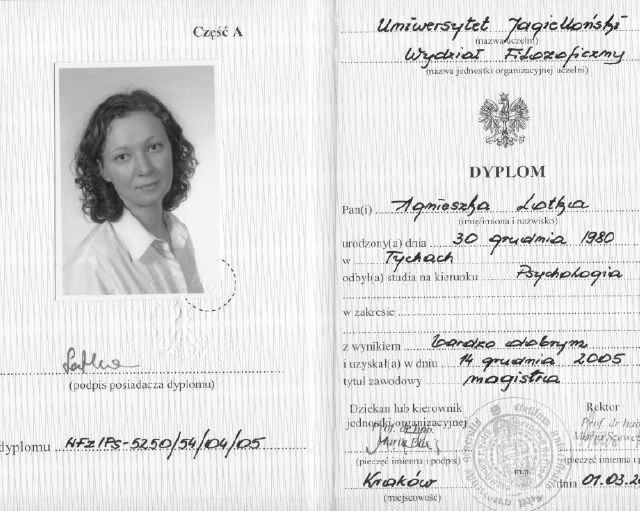 Część A
(podpis posiadacza dyplomu)
dyplomu HFz/PS-5250/54/104/05
Uniwersytet Jagielloński
(nazwa uczelni)
Wydział Filozoficzny
(nazwa jednostki organizacyjnej uczelni)
DYPLOM
Pan(i) Agnieszka Lutka
(imię/imiona i nazwisko)
urodzony(a) dnia 30 grudnia 1980
w Tychach
odbył(a) studia na kierunku Psychologia
w zakresie
z wynikiem bardzo dobrym
i uzyskał(a) w dniu 14 grudnia 2005
tytuł zawodowy magistra
Dziekan lub kierownik
jednostki organizacyjnej
Rektor
Prof. dr hab.
(pieczęć imienna i podpis)
m.p.
(pieczęć imienna i p
Kraków
dnia 01.03.20
(miejscowość)